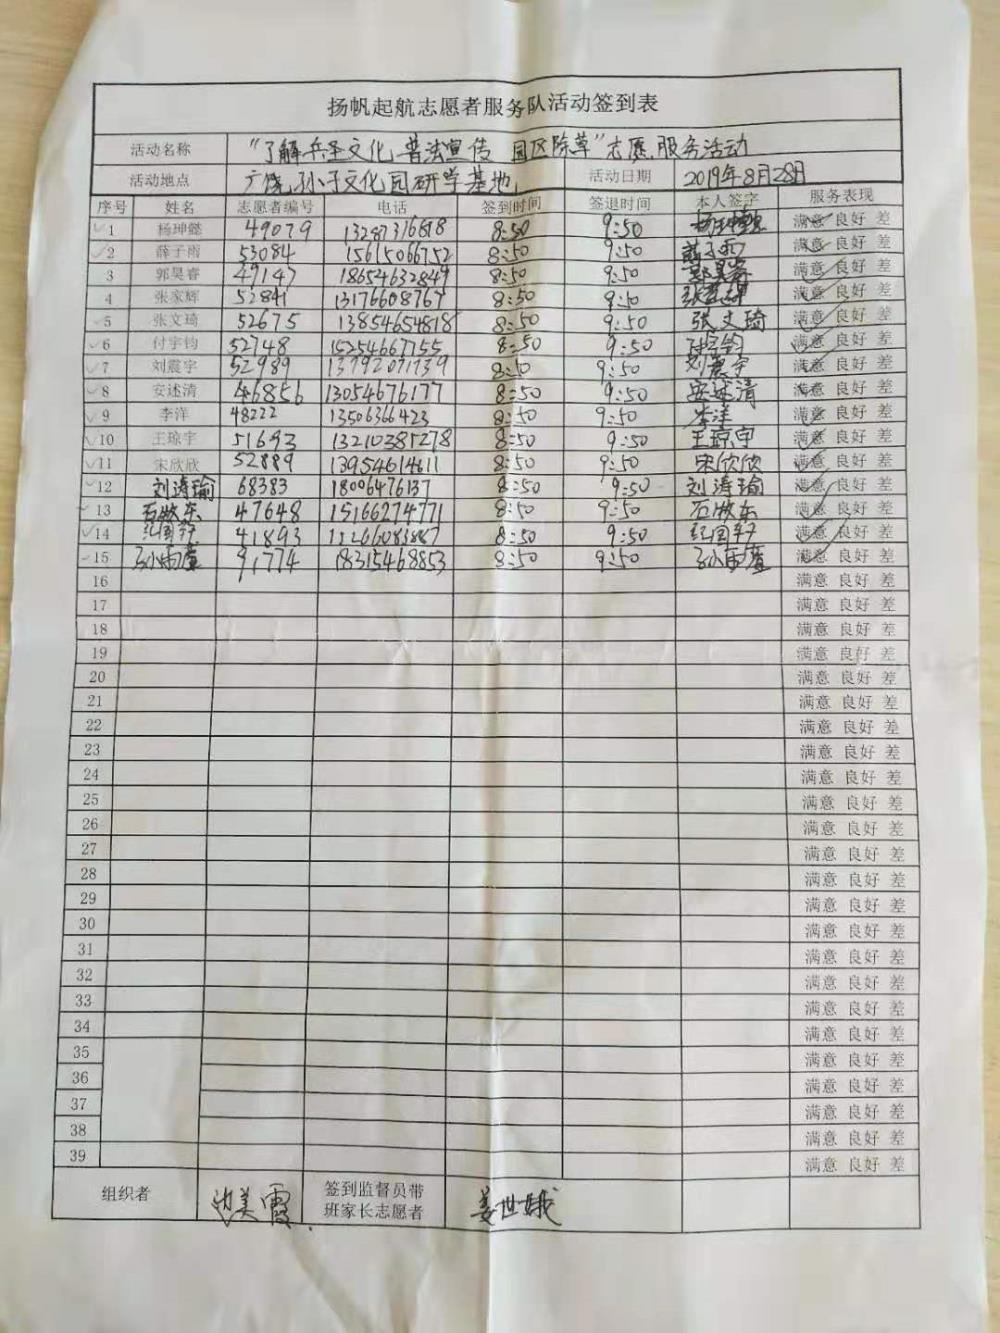 扬帆起航志愿者服务队活动签到表
活动名称 "了解兵圣文化 普法宣传 园区除草"志愿服务活动
活动地点 广饶孙子文化园研学基地 活动日期 2019年8月28日
序号 姓名 志愿者编号 电话 签到时间 签退时间 本人签字 服务表现
1 杨珅懿 49079 13287316818 8:50 9:50 杨珅懿 满意 良好 差
2 薛子雨 53084 15615066752 8:50 9:50 薛子雨 满意 良好 差
3 郭昊睿 49147 18654632849 8:50 9:50 郭昊睿 满意 良好 差
4 张家辉 52841 13176608767 8:50 9:50 张家辉 满意 良好 差
5 张文琦 52675 13854654818 8:50 9:50 张文琦 满意 良好 差
6 付宇钧 52748 15254667755 8:50 9:50 付宇钧 满意 良好 差
7 刘震宇 52989 13792071739 8:50 9:50 刘震宇 满意 良好 差
8 安述清 46856 13054676177 8:50 9:50 安述清 满意 良好 差
9 李洋 48222 13506366423 8:50 9:50 李洋 满意 良好 差
10 王琼宇 51693 13210385278 8:50 9:50 王琼宇 满意 良好 差
11 宋欣欣 52889 13954614611 8:50 9:50 宋欣欣 满意 良好 差
12 刘涛瑜 68383 18006476137 8:50 9:50 刘涛瑜 满意 良好 差
13 石俶东 47648 15166274771 8:50 9:50 石俶东 满意 良好 差
14 41893 8:50 9:50 满意 良好 差
15 91774 18315468853 8:50 9:50 满意 良好 差
16 满意 良好 差
17 满意 良好 差
18 满意 良好 差
19 满意 良好 差
20 满意 良好 差
21 满意 良好 差
22 满意 良好 差
23 满意 良好 差
24 满意 良好 差
25 满意 良好 差
26 满意 良好 差
27 满意 良好 差
28 满意 良好 差
29 满意 良好 差
30 满意 良好 差
31 满意 良好 差
32 满意 良好 差
33 满意 良好 差
34 满意 良好 差
35 满意 良好 差
36 满意 良好 差
37 满意 良好 差
38 满意 良好 差
39 满意 良好 差
组织者 签到监督员带 姜世娥
班家长志愿者